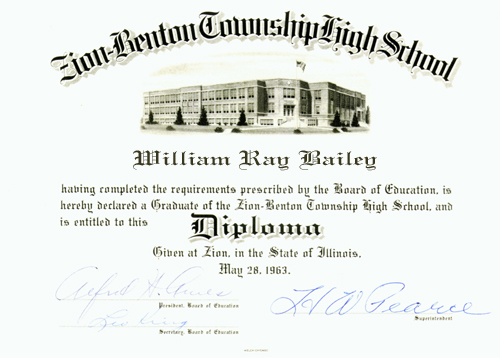 Zion-Benton Township High School
William Ray Bailey
having completed the requirements prescribed by the Board of Education, is
hereby declared a Graduate of the Zion-Benton Township High School, and
is entitled to this Diploma
Given at Zion, in the State of Illinois,
May 28, 1963.
Alfred H. Ames
President, Board of Education
H W Pearce
Superintendent
Secretary, Board of Education